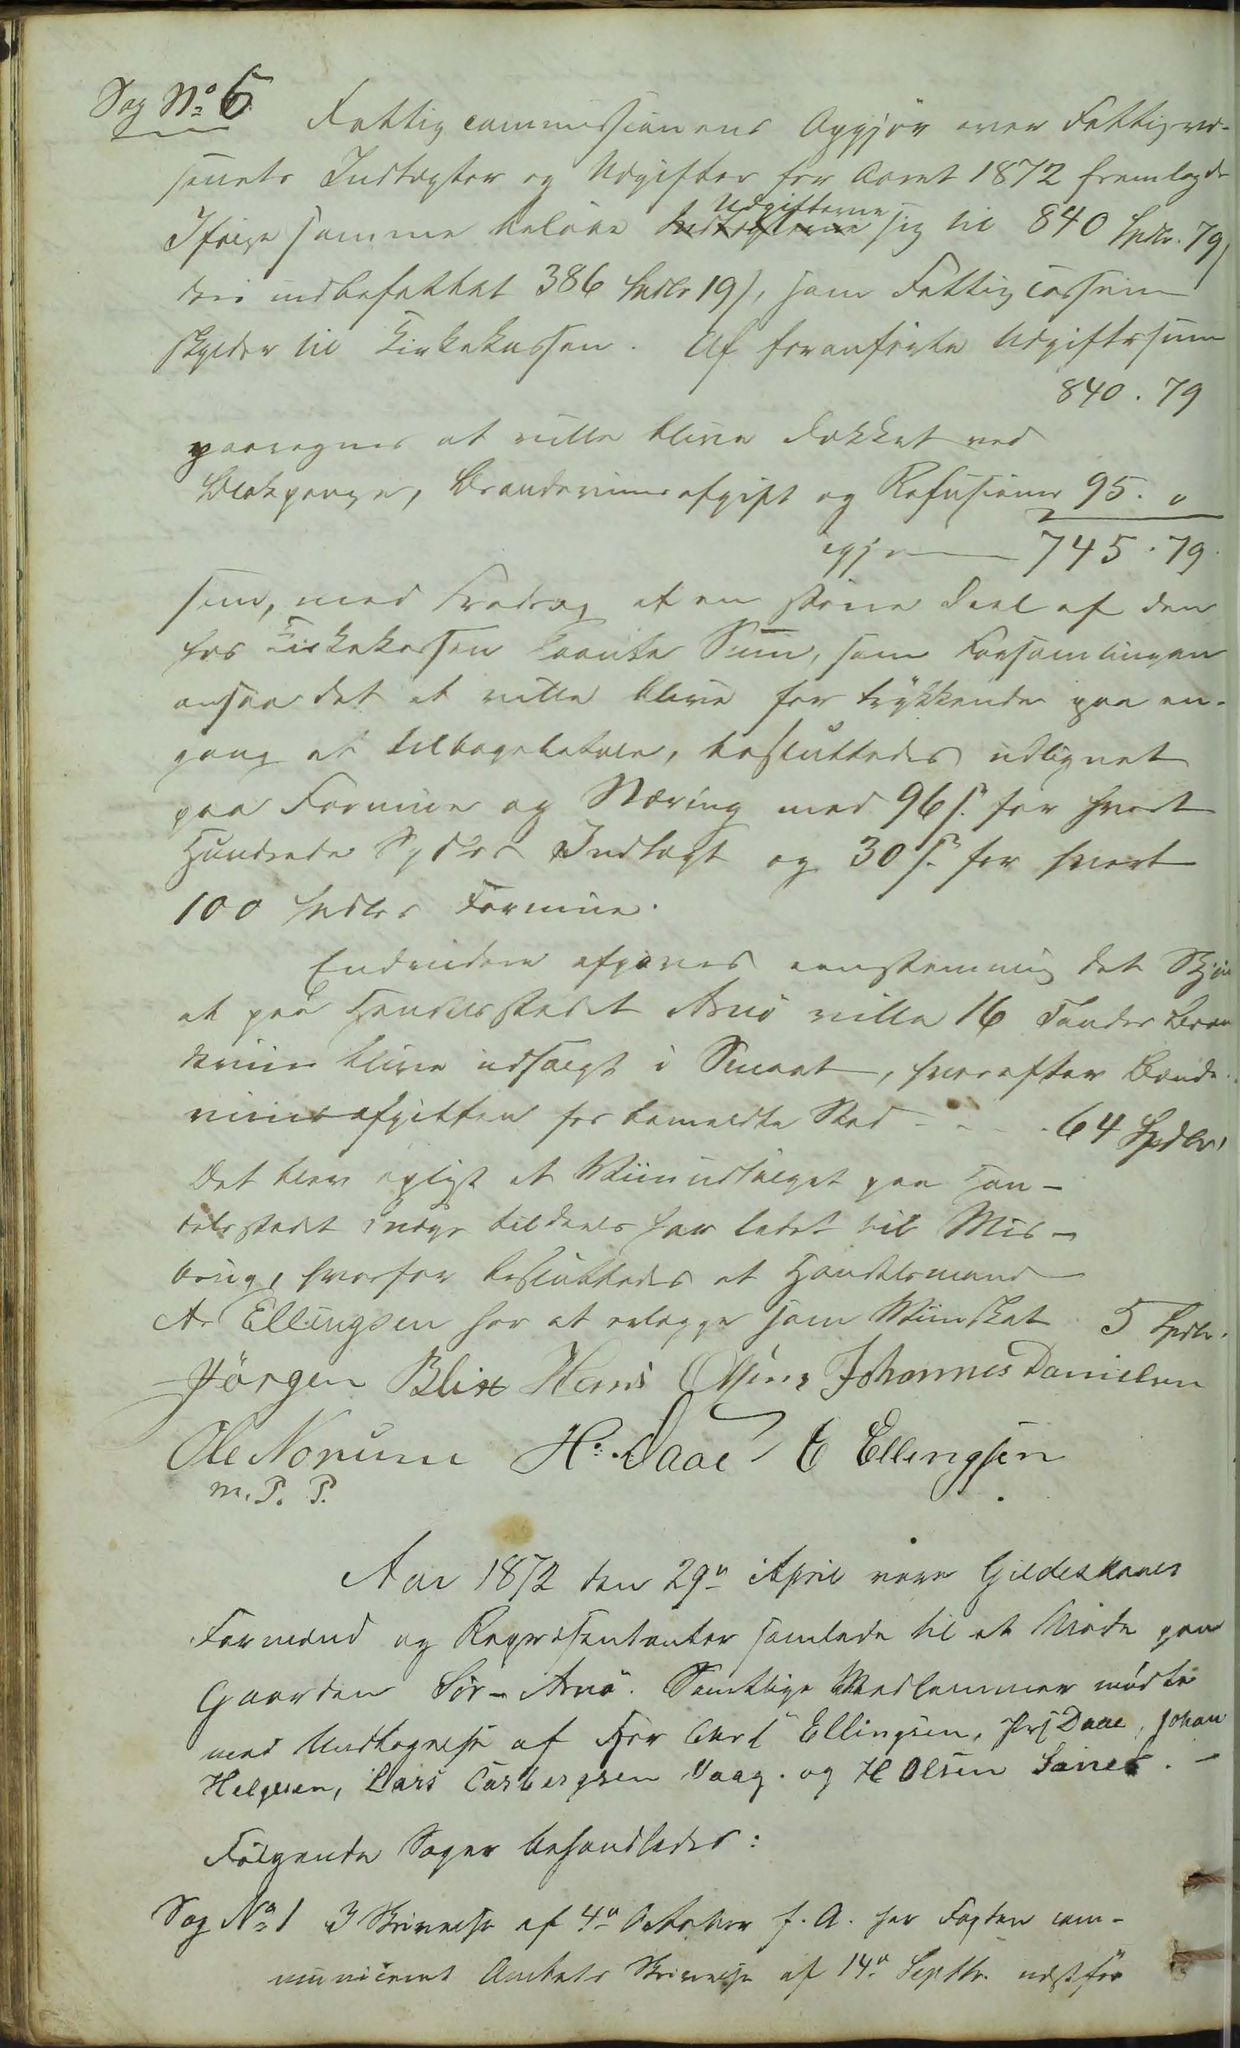 Sag No 6 Fattigcommissionens Opgjør over Fattigvæ-
senets Indtægter og Udgifter for Aaret 1872 fremlagdes
Ifølge samme beløbe Indtægterne Udgifterne sig til 840 Spdlr. 79 s
deri indbefattet 386 Spdlr 19 s, som Fattigcassen
skylder til Kirkekassen. Af foranførte Udgiftssum
840 . 79
paaregnes at ville blive dækket ved
Blokpenge, Brændeviinsafgift og Refusioner 95. „
igjen 745 . 79
som, med Fradrag af en større Deel af den
hos Kirkekassen laante Sum, som Forsamlingen
ansaa det at ville blive for trykkende paa en-
gang at tilbagebetale, besluttedes udlignet
paa Formue og Næring med 96 s. for hvert
Hundrede Spdlrs Indtægt og 30 s. for hvert
100 Spdlrs Formue.
Endvidere afgaves eenstemmig det Skjøn
at paa Handelsstedet Arnø ville 16 Tønder Bræn
deviin blive udsolgt i Smaat, hvorefter Brænde-
viinsafgiften for bemeldte Sted - - - 64 Spdlr.
Det blev oplyst at Viinudsalget paa Han-
delsstedet Indyr tildeels har ledet til Mis-
brug, hvorfor besluttedes at Handelsmand
A. Ellingsen har at erlægge som Viinskat 5 Spdlr.
Jörgen Blix Hans Olsen Johannes Danielsen
Ole Norum H. Daae E Ellingsen
m. P. P.
Aar 1872 den 29de April vare Gildeskaals
Formænd og Repræsentanter samlede til et Møde paa
Gaarden Sør-Arnø. Samtlige Medlemmer mødte
med Undtagelse af Hrr Chrs Ellingsen, Hrs Daae, Johan
Helgesen, Lars Carbergsen Vaag. og H Olsen Sørnes. -
Følgende Sager behandledes:
Sag No 1 I Skrivelse af 4de October f. A. har Fogden com-
municeret Amtets Skrivelse af 14de Septbr. næstfør